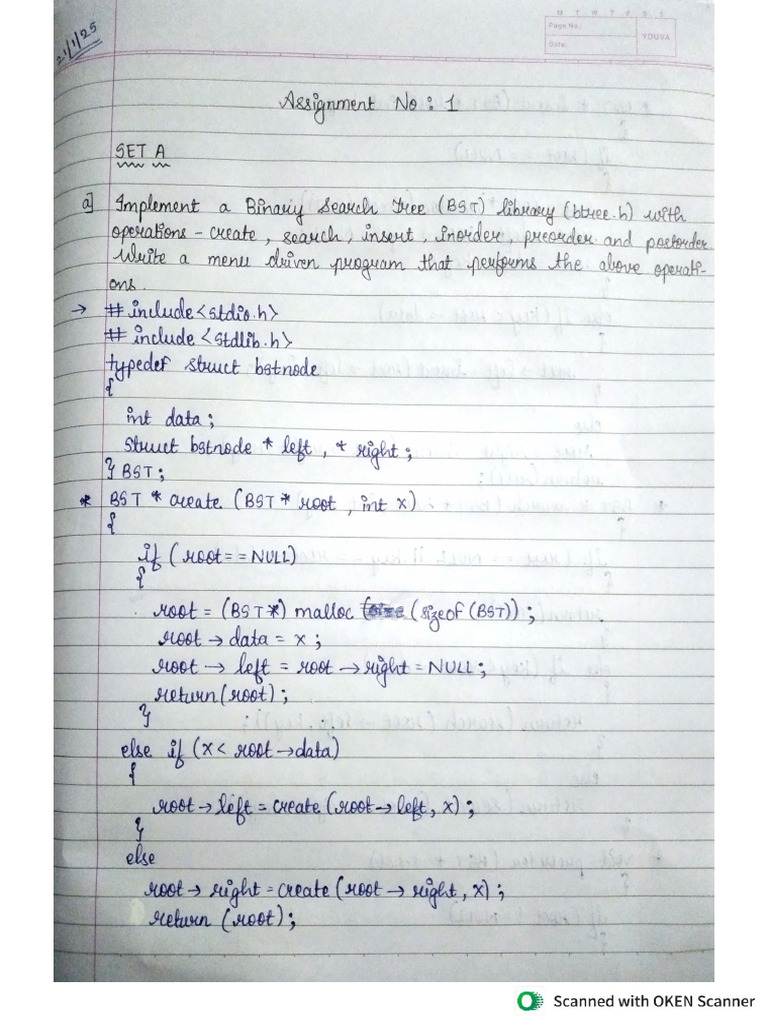 21/1/25
M T W T F S S
Page No.:
Date:
YOUVA
Assignment No : 1
SET A
a] Implement a Binary Search Tree (BST) library (btree.h) with
operations - create, search, insert, inorder, preorder and postorder.
Write a menu driven program that performs the above operati-
ons.
→ # include <stdio.h>
# include <stdlib.h>
typedef struct bstnode
{
int data ;
struct bstnode * left , * right ;
} BST ;
* BST * create (BST * root , int x)
{
if ( root = = NULL)
{
root = (BST *) malloc (sizeof (BST)) ;
root → data = x ;
root → left = root → right = NULL ;
return (root) ;
}
else if (x < root → data)
{
root → left = create (root → left , x) ;
}
else
root → right = create (root → right , x) ;
return (root) ;
Scanned with OKEN Scanner